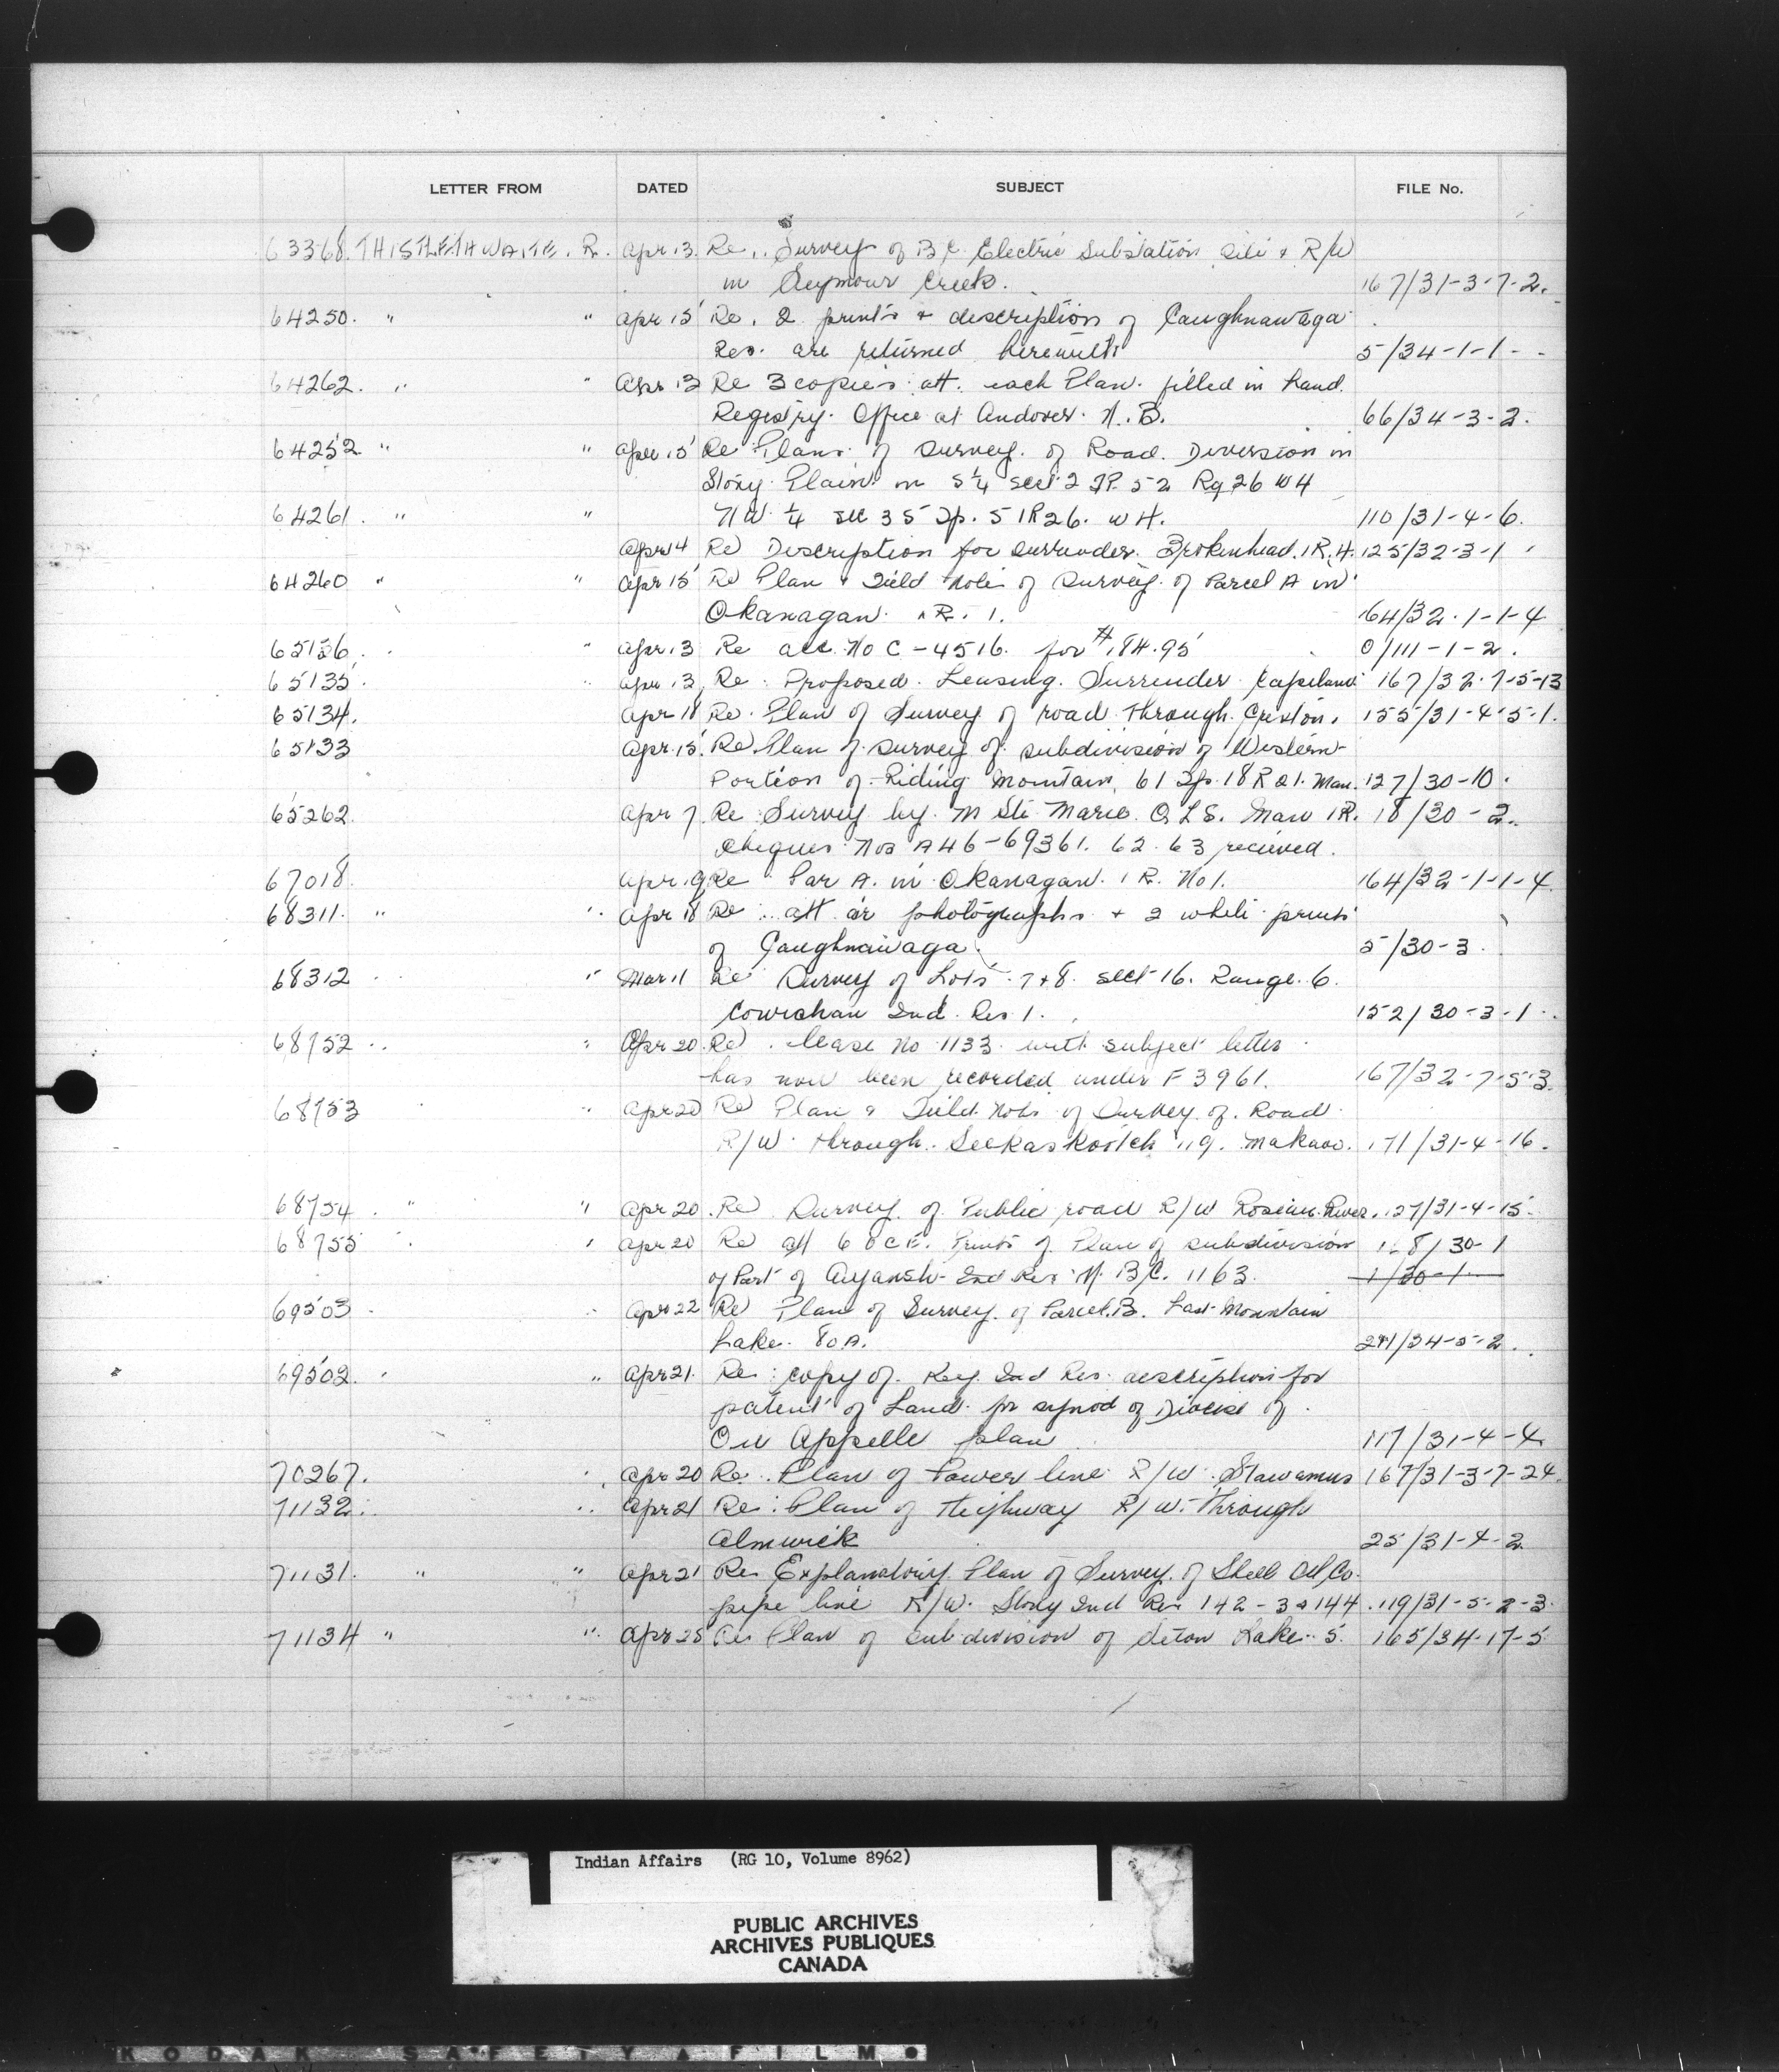 LETTER FROM DATED SUBJECT FILE No.
63368. THISTLETHWAITE. R. Apr 13. Re.. Survey of B.C. Electric Substation Site & R/W
in Seymour Creek. 167/31-3-7-2.
64250. " " Apr 15 Re. 2 prints & description of Caughnawaga
Res. are returned herewith 5/34-1-1-
64262. " " Apr 13 Re 3 copies att. each Plan. filled in Land
Registry. Office at Andover. N.B. 66/34-3-2.
64252 " " Apr 15 Re Plans of Survey. of Road. Diversion in
Stony Plain in S ¼ Sect 2 TP. 52 Rg 26 W4
64261. " " NW. ¼ Sec 35 Tp. 51R26. W4. 110/31-4-6.
Apr 14 Re Description for surrender. Brokenhead. IR. 4. 125/32-3-1
64260 " " Apr 15 Re Plan & Field Note of Survey. of Parcel A in
Okanagan. I.R. 1. 164/32.1-1-4
65136. " Apr 13 Re acc. No C-4516. for $184.95 0/111-1-2.
65135. " Apr. 13, Re. Proposed. Leasing. Surrender Kapilano 167/32.7-5-13
65134. Apr 18 Re. Plan of Survey of road through. Creston. 155/31-4-5-1.
65133 Apr. 15. Re Plan of Survey of subdivision of Western
Portion of Riding Mountain, 61 Tp. 18 R 21. Man. 127/30-10.
65262. Apr 7. Re Survey by M Ste Marie. Q.L.S. Maw IR. 18/30-2.
Cheques Nos A46-69361. 62. 63 recieved.
67018. Apr. 19, Re Par A. in Okanagan. I R. No 1. 164/32-1-1-4.
68311. " " Apr 18 Re att air photographs & 2 white prints
of Caughnawaga. 5/30-3.
68312 " Mar 11 Re Survey of Lots. 7+8. Sect 16. Range. 6.
Cowichan Ind. Res 1. 152/30-3-1.
68752 " Apr 20. Re. lease No 1133 with subject letter
has now been recorded under F3961. 167/32-7-5-3.
68753 " Apr 20 Re Plan & Field Note of Survey. of. Road
R/W. through. Seekaskootch 119. Makaoo. 171/31-4-16.
68754. " " Apr 20. Re Survey. of Public road R/W Roseau River. 127/31-4-15.
68755 " Apr 20 Re att 6 O.C.E. Prints of Plan of subdivision 168/30-1
of Part of Aiyansh Ind Res N. B.C. 1163. 1/30-1
69503. " Apr 22 Re Plan of Survey. of Parcel. B. Last Mountain
Lake. 80A. /34-5-2.
69502. " Apr 21. Re. copy of. Key. Ind Res. description for
patent of Land. for synod of Diocese of.
Qu Appelle plan 117/31-4-4
70267. " Apr 20 Re. Plan of Power line R/W. Stawamus 167/31-3-7-24.
71132. " Apr 21 Re. Plan of Highway R/W. Through
Alnwick 25/31-4-2.
71131. " " Apr 21 Re. Explanatory Plan of Survey. of Shell Oil Co.
pipe line R/W. Stony Ind Res 142-3 & 144. 119/31-5-2-3.
71134 " " Apr 25 Re Plan of subdivision of Seton Lake. 5. 165/34-17-5
Indian Affairs (RG 10, Volume 8962)
PUBLIC ARCHIVES
ARCHIVES PUBLIQUES
CANADA
KODAK SAFETY FILM